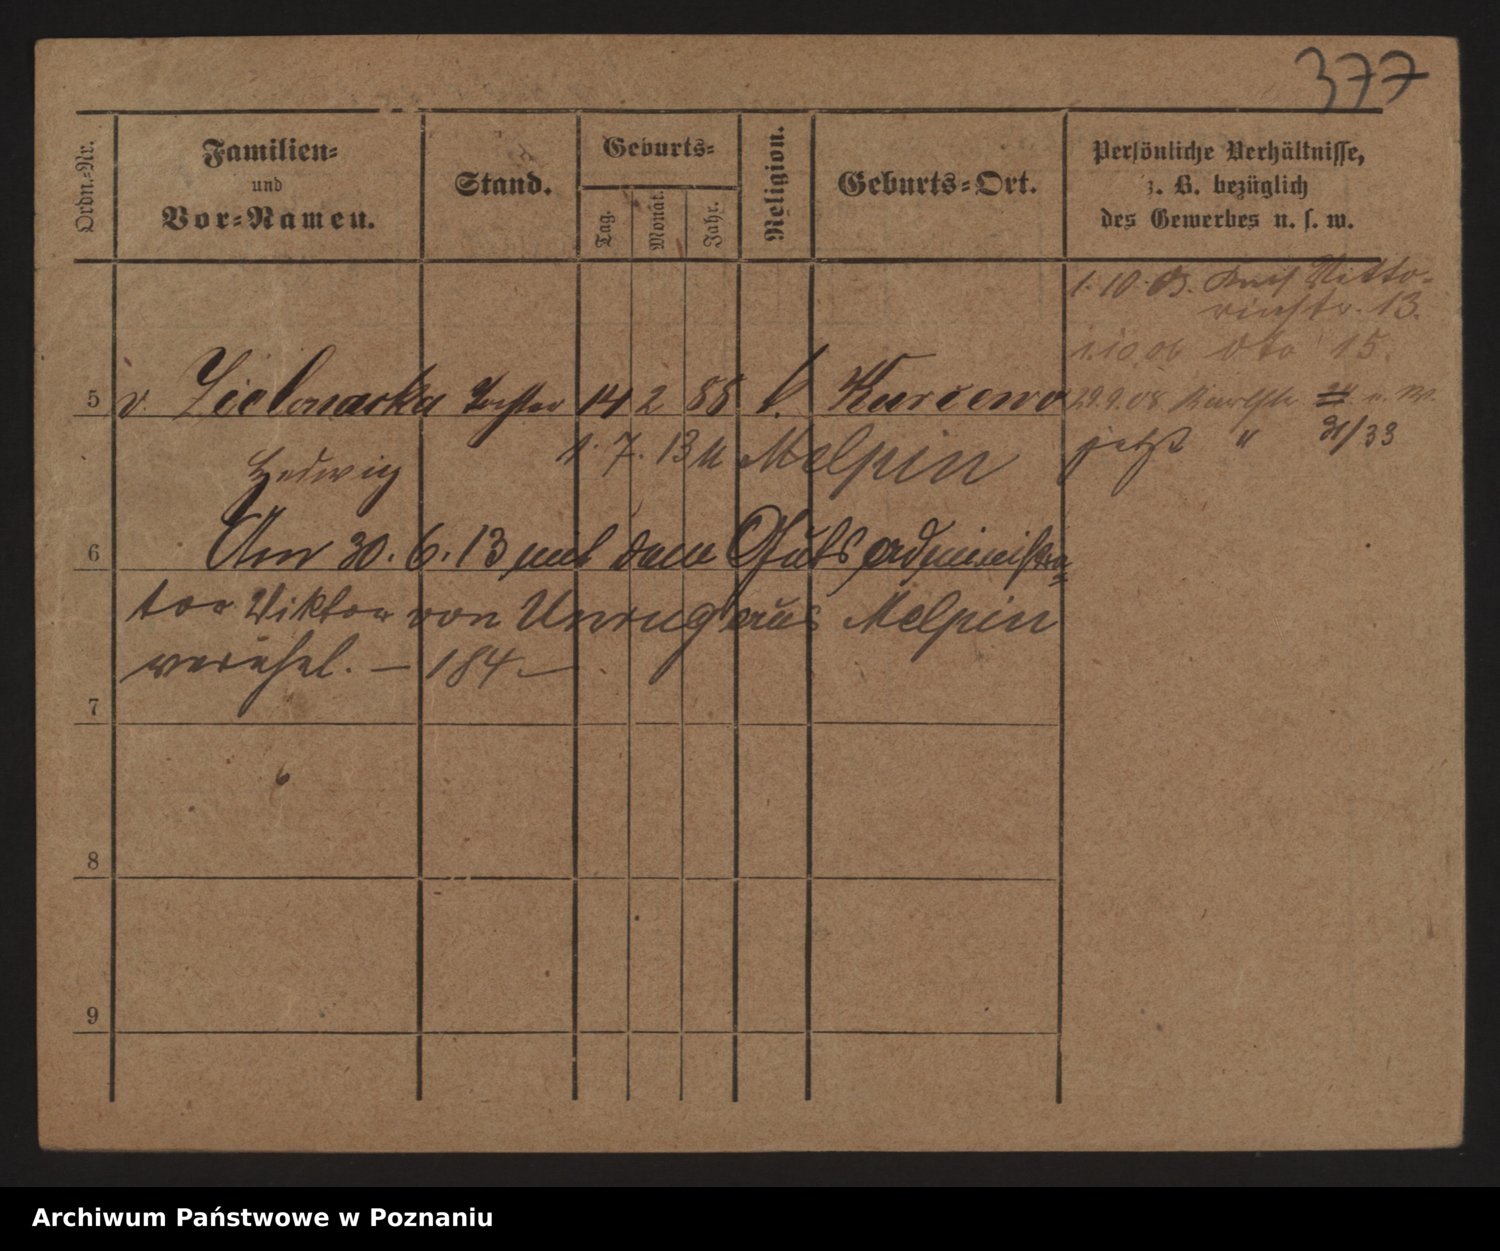 377
Ordn.-Nr.
Familien-
und
Vor-Namen.
Stand.
Geburts-
Tag.
Monat.
Jahr.
Religion.
Geburts-Ort.
Persönliche Verhältnisse,
z. B. bezüglich
des Gewerbes u. s. w.
1.10.03. Vikto-
riastr. 13.
1.10.06 dto 15.
5 v. Zielonacka Tochter 14 2 88 k. Kurcewo
29.9.08
Hedwig 1.7.13 n. Melpin jetzt " 31/33
6 Am 30.6.13 mit dem Gutsadministra-
tor Viktor von Unrug aus Melpin
verehel. — 184 —
7
8
9
Archiwum Państwowe w Poznaniu